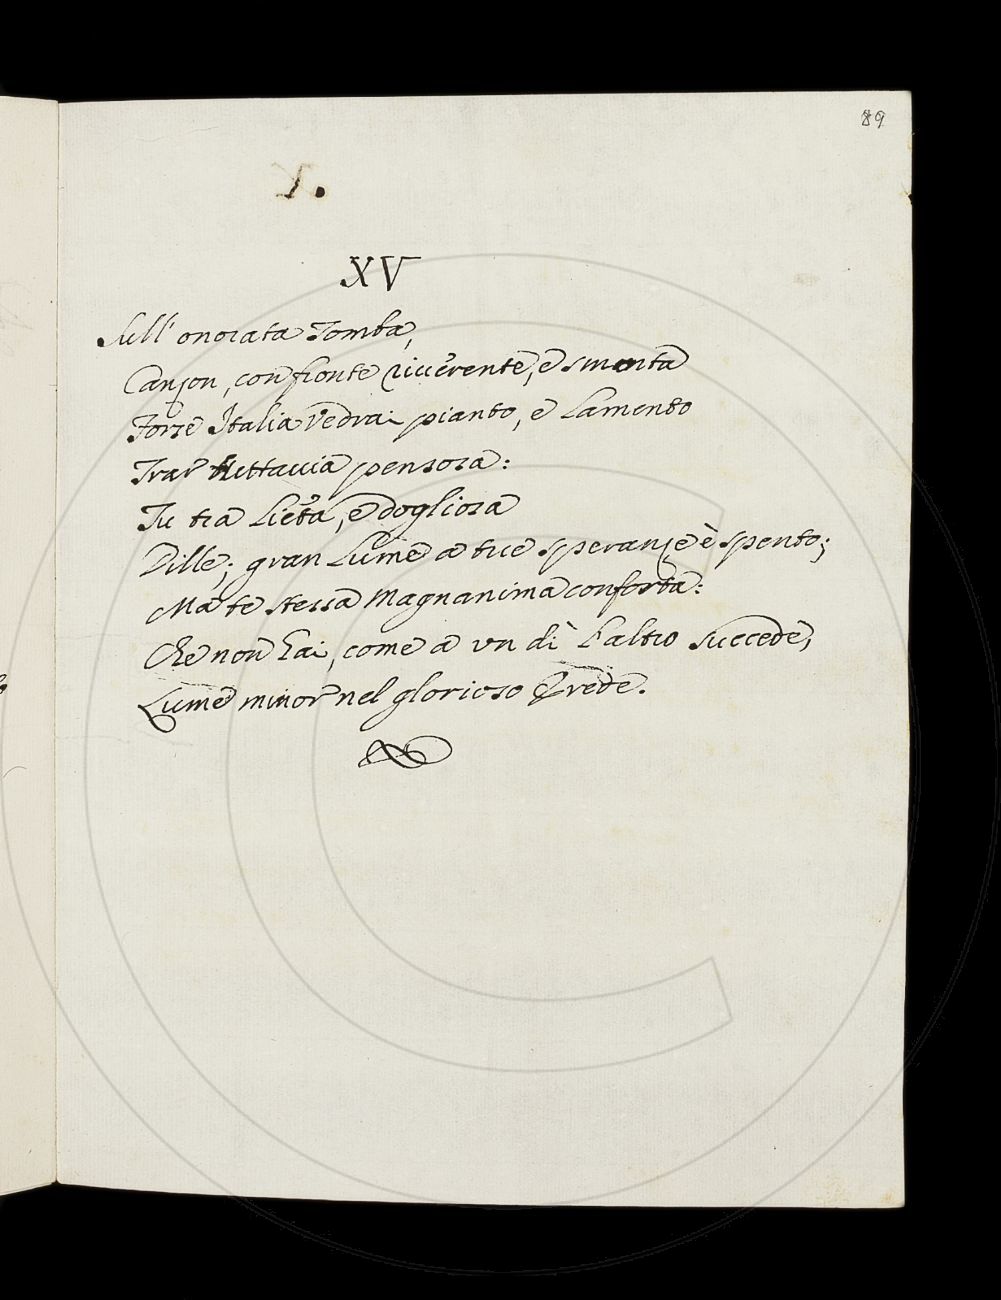 89
1.
XV
Sull' onorata Tomba,
Canzon, con fronte riverente, e smorta
Forse Italia vedrai pianto, e lamento
Trar tuttavia pensosa:
Tu tra lieta, e dogliosa
Dille; gran Lume a tue speranze è spento;
Ma te stessa Magnanima conforta:
Che non hai, come a un dì l'altro succede,
Lume minor nel glorioso Erede.